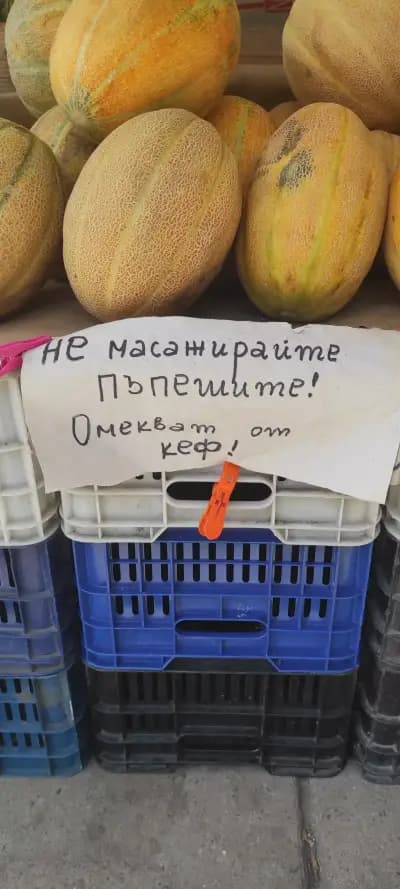 не масажирайте
пъпешите!
Омекват от
кеф!